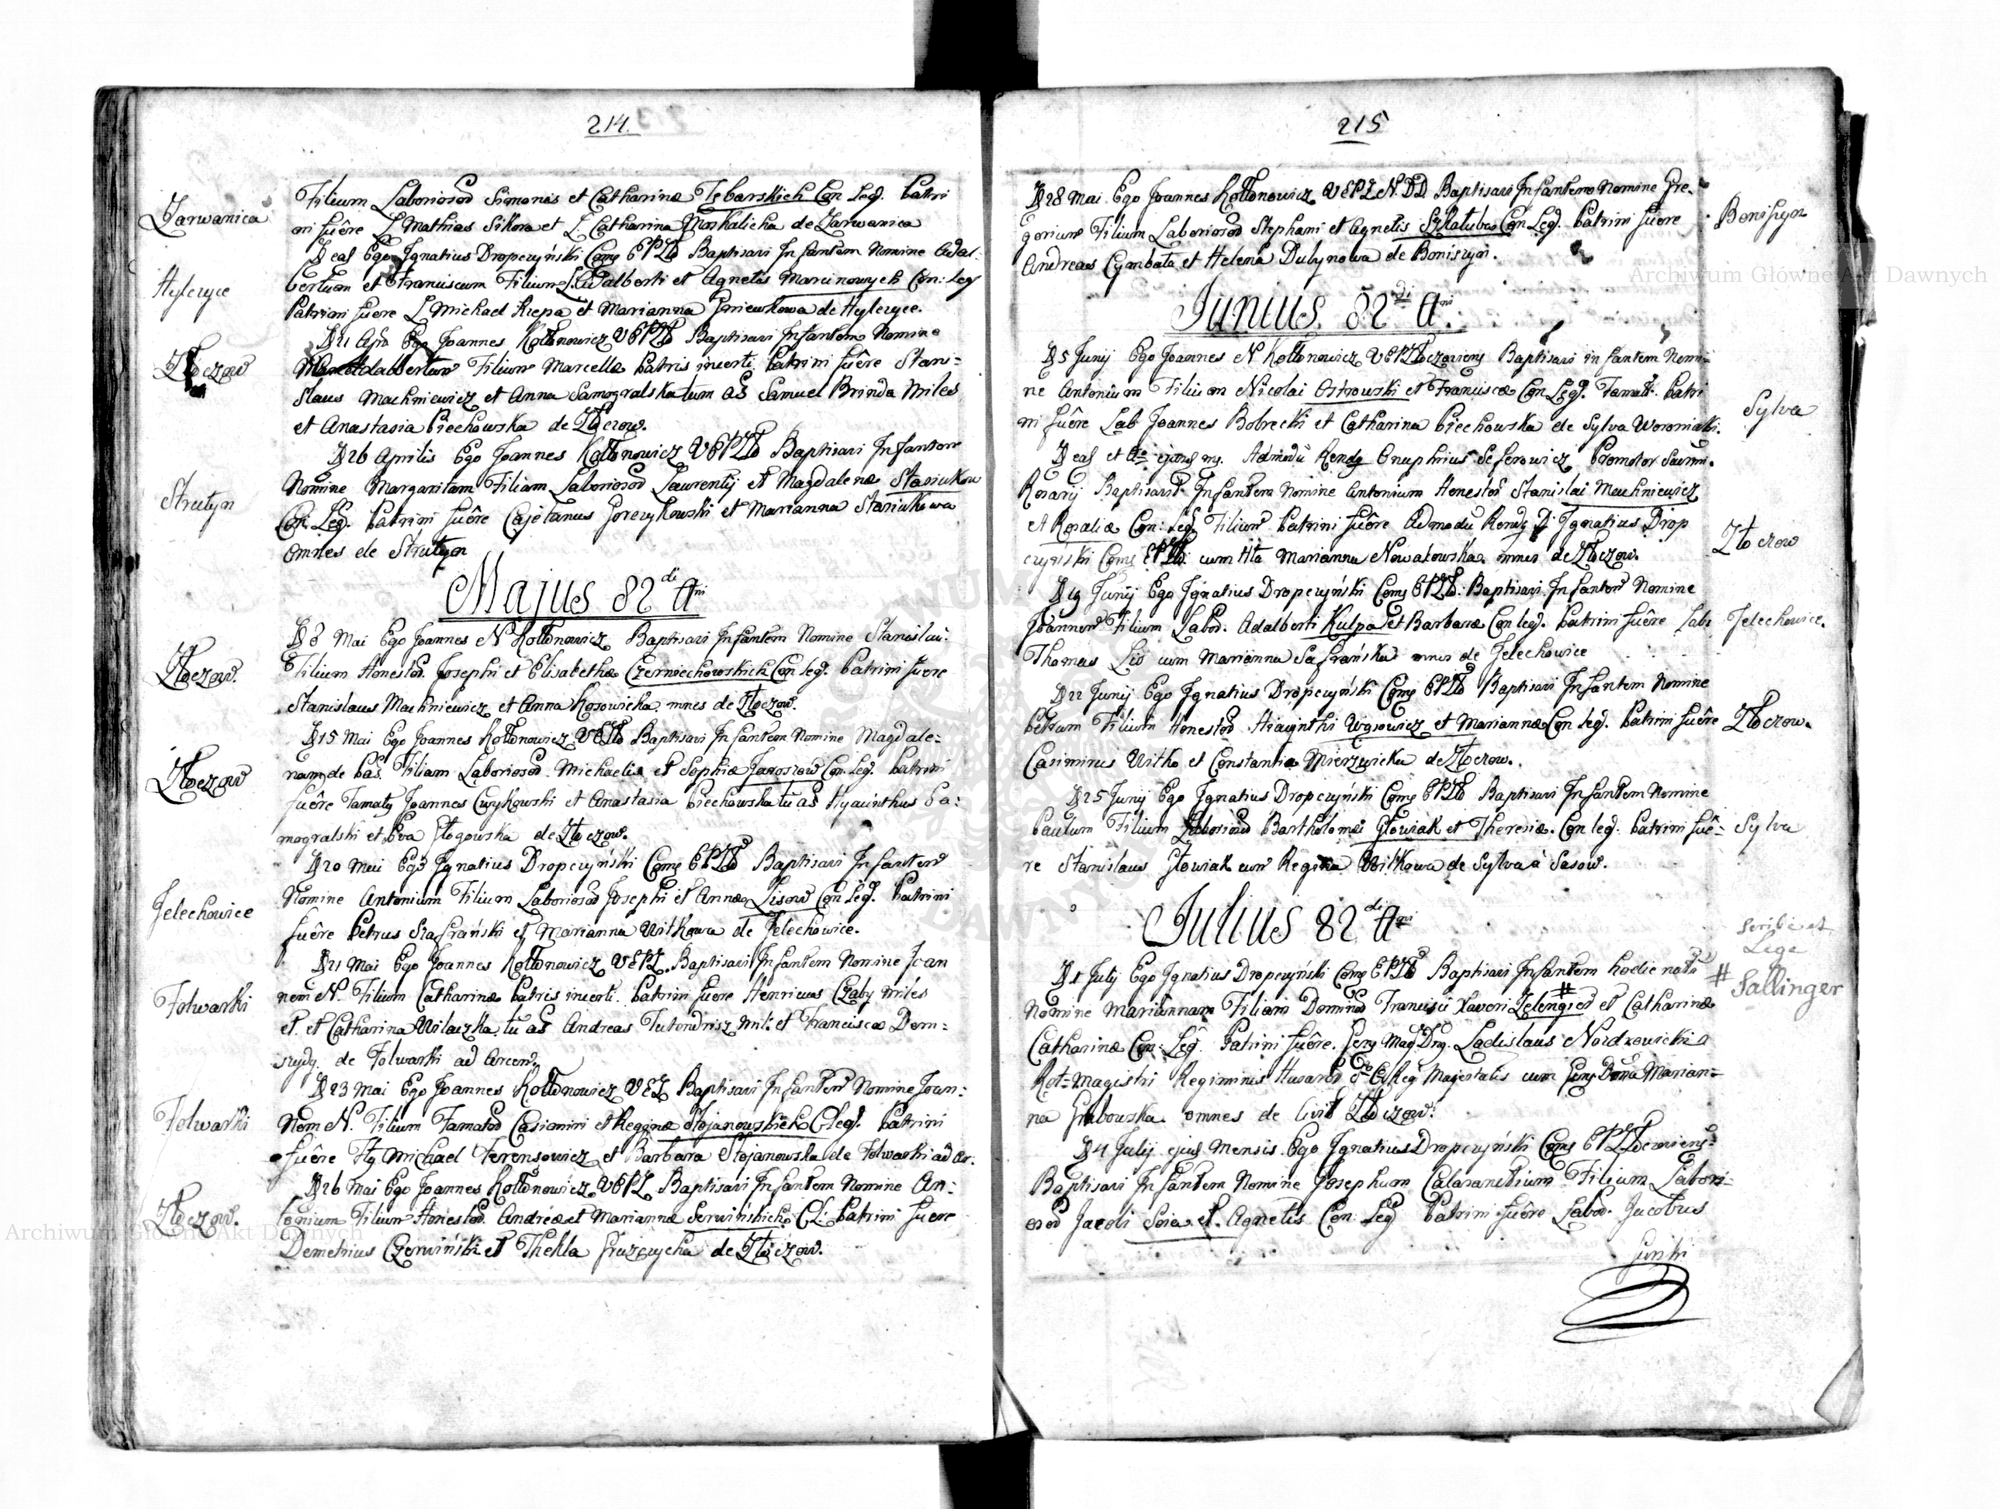 214.
Zarwanica
Filium Laboriosor Simonis et Catharinæ Tebarskich Con Leg. Patri
ni fuêre L Mathias Sikora et L. Catharina Moskalicha de Zarwanica
D eas Ego Ignatius Dropczyński Comg EPZło Baptisavi Infantem Nomine Adal:
Hylczyce
bertum et Franciscum Filium L. Adalberti et Agnetis Marcinowych Con: Leg
Patrini fuere L Michael Rzepa et Marianna Gniewkowa de Hylczyce.
D 21 Ego Joannes Kołłonowicz VEPZło Baptisavi Infantem Nomine
Złoczow
Adalbertum Filium Marcellæ Patris incerti Patrini fuêre Stani=
slaus Machniewicz et Anna Samogralska tum as Samuel Brinda Miles
et Anastasia Piechowska de Złoczow.
D 26 Aprilis Ego Joannes Kołłonowicz VEPZło Baptisavi Infantem
Strutyn
Nomine Margaritam Filiam Laboriosor Laurentij et Magdalenæ Stasiukow
Con. Leg. Patrini fuêre Cajetanus Gorczykowski et Marianna Stasiukowa
omnes de Strutyn
Majus 82di Ani
D 8 Mai Ego Joannes N Kołłonowicz Baptisavi Infantem Nomine Stanislau:
Złoczow.
Filium Honestor Josephi et Elisabethæ Czerniechowskich Con leg. Patrini fuere
Stanislaus Machniewicz et Anna Kosowicka mnes de Złoczow.
D 15 Mai Ego Joannes Kołłonowicz VEPZło Baptisavi Infantem Nomine Magdale=
Złoczow
nam de Pas. Filiam Laboriosor Michaelis et Sophiæ Jarosow Con. Leg. Patrini
fuêre Famaty Joannes Cwykowski et Anastasia Piechowska tu as Hyacinthus Sa=
mogralski et Eva Głogowska de Złoczow.
D 20 Mai Ego Ignatius Dropczyński Comg EPZło Baptisavi Infantem
Jelechowice
Nomine Antonium Filium Laboriosor Josephi et Annæ Lisow Con Leg. Patrini
fuêre Petrus Szafrański et Marianna Witkowa de Jelechowice.
D 21 Mai Ego Joannes Kołłonowicz VEPZ. Baptisavi Infantem Nomine Joan
Folwarki
nem N. Filium Catharinæ Patris incerti. Patrini fuere Henricus Czaby Miles
et et Catharina Wilaczka tu as Andreas Tutendrisz mil: et Francisca Dom=
de Folwarki ad Arcem
D 23 Mai Ego Joannes Kołłonowicz VEZ Baptisavi Infantem Nomine Joan:
Folwarki
Nem N. Filium Famator Casimiri et Reginæ Stojanowskich C leg. Patrini
fuêre Hy Michael Ferensowicz et Barbara Stojanowska de Folwarki ad Ar.
D 26 Mai Ego Joannes Kołłonowicz VEPZ Baptisavi Infantem Nomine An=
Złoczow.
tonium Filium Honestor Andreæ et Mariannæ Serwińskich CL: Patrini fuere
Demetrius Czerwiński et Thekla Gruszczycha de Złoczow.
215
D 28 Mai Ego Joannes Kołłonowicz VEPZ N.DD Baptisavi Infantem Nomine Gre=
Boniszyn
gorium Filium Laboriosor Stephani et Agnetis Szkatubow Con Leg. Patrini fuere
Andreas Cymbała et Helena Dulynowa de Boniszyn.
Junius 82di Ani
D 5 Junij Ego Joannes N Kołłonowicz VEPZłoczoviens Baptisavi infantem Nomi=
ne Antonium Filium Nicolai Ostrowski et Franciscæ Con Leg. Famatt. Patri
Sylva
ni fuêre Lab Joannes Bobrecki et Catharina Piechowska de Sylva Woroniaki.
D eas et Ao ejusq ms. Admodu Rendg Onuphrius Seferowicz Promotor Sacmi.
Rosarij Baptisavit Infantem Nomine Antonium Honestor Stanislai Machniewicz
et Rosaliæ Con: Leg Filium Patrini fuêre Admodu Rendg D: Ignatius Drop
Złoczow
czyński Comg EPZło cum Hta Marianna Nowakowska mnes de Złoczow.
D 19 Junij Ego Ignatius Dropczyński Comg EPZło Baptisavi Infantem Nomine
Joannem Filium Labor. Adalberti Kulpa et Barbaræ Con leg. Patrini fuêre Lab:
Jelechowice.
Thomas Lis cum Marianna Safrańska mnes de Jelechowice
D 22 Junij Ego Ignatius Dropczyński Comg EPZło Baptisavi Infantem Nomine
Petrum Filium Honestor Hiacinthi Wąsowicz et Mariannæ Con leg. Patrini fuêre
Złoczow.
Casimirus Witko et Constantia Mierzwicka de Złoczow.
D 25 Junij Ego Ignatius Dropczyński Comg EPZło Baptisavi Infantem Nomine
Paulum Filium Laboriosor Bartholomæi Głowiak et Theresiæ. Con leg. Patrini fuê=
Sylva
re Stanislaus Głowiak cum Regina Woitkowa de Sylva à Sasow.
Julius 82di Ani
scribe et
Lege
# Sallinger
D 1 Julij Ego Ignatius Dropczyński Comg EPZło Baptisavi Infantem hodie natam
Nomine Mariannam Filiam Dominor Francisci Xaveri Zelengier # et Catharinæ
Catharinæ Con: Leg. Patrini fuêre. Ladislaus Nordzowicki
Rot=Magistri Regiminis Husaror Reg Majestatis cum Marian=
na Grabowska omnes de Civit Złoczow.
D 4 Julij ejus Mensis Ego Ignatius Dropczyński Comg EPZłoczviens:
Baptisavi Infantem Nomine Josephum Calasanctium Filium Labori=
osor Jacobi Soia et Agnetis Con Leg Patrini fuêre Labor. Jacobus